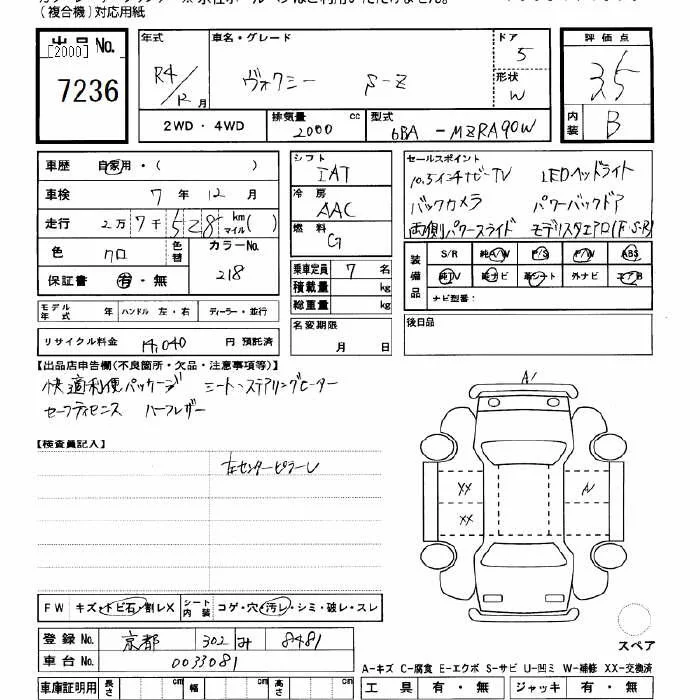 (複合機)対応用紙
出品No. 年式 車名・グレード ドア 評価点
[2000] 7236 R4/12月 ヴォクシー S-Z 5 3.5
形状 W
2WD・4WD 排気量 2000 cc 型式 6BA-MZRA90W 内装 B
車歴 自家用・( )
車検 7年 12月
走行 2万7千528 km マイル( )
色 クロ 色替 カラーNo. 218
保証書 有・無
シフト IAT
冷房 AAC
燃料 G
乗車定員 7名
積載量 kg
総重量 kg
セールスポイント
10.5インチナビ・TV LEDヘッドライト
バックカメラ パワーバックドア
両側パワースライド モデリスタエアロ(F・S・R)
装備品 S/R 純A/W P/S P/W ABS
純TV 純ナビ 革シート 外ナビ エアB
ナビ型番:
モデル年式 年 ハンドル 左・右 ディーラー・並行
名変期限 月 日
後日品
リサイクル料金 14,040 円 預託済
【出品店申告欄(不良箇所・欠品・注意事項等)】
快適利便パッケージ シート・ステアリングヒーター
セーフティセンス ハーフレザー
【検査員記入】
左センターピラーU
A/
XX A/
XX
FW キズ・トビ石・割レX シート内装 コゲ・穴・汚レ・シミ・破レ・スレ
登録No. 京都 302 み 8481
車台No. 0033081
スペア
A-キズ C-腐食 E-エクボ S-サビ U-凹ミ W-補修 XX-交換済
車庫証明用 長さ cm 幅 cm 高さ cm 工具 有・無 ジャッキ 有・無